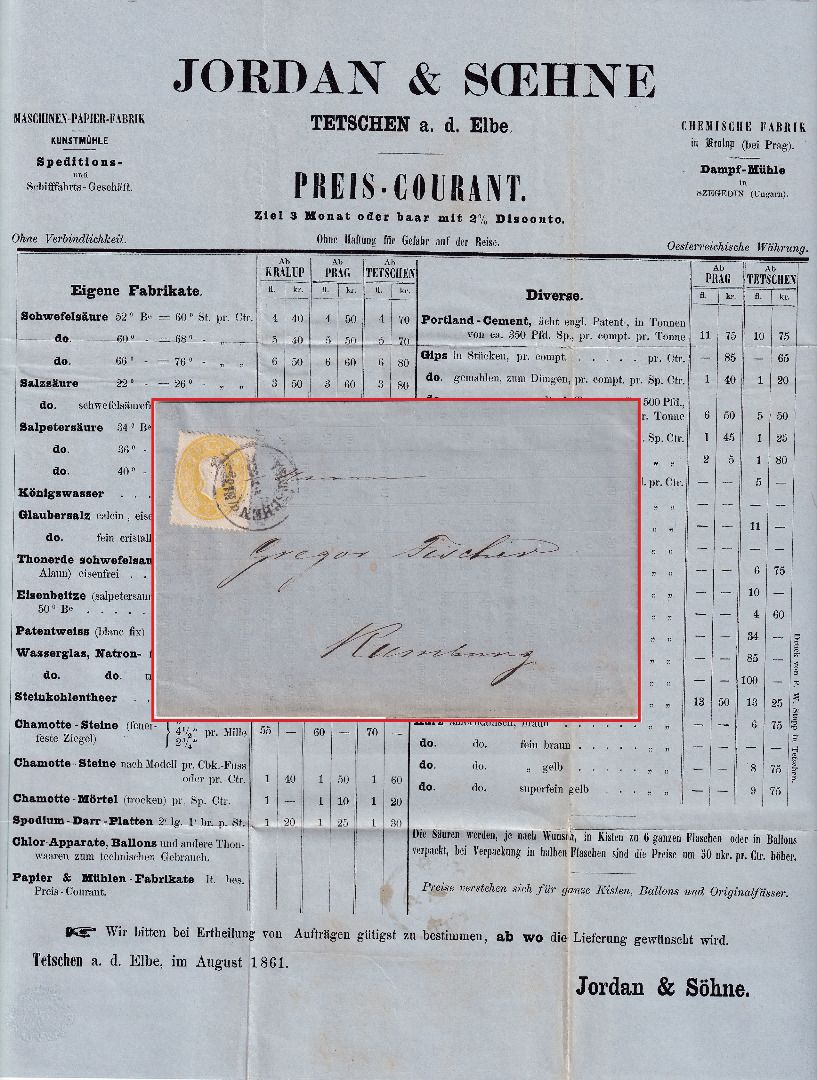 JORDAN & SŒHNE
MASCHINEN-PAPIER-FABRIK
KUNSTMÜHLE
Speditions-
und
Schifffahrts-Geschäft.
TETSCHEN a. d. Elbe.
CHEMISCHE FABRIK
in Kralup (bei Prag).
Dampf-Mühle
in
SZEGEDIN (Ungarn).
PREIS-COURANT.
Ziel 3 Monat oder baar mit 2% Disconto.
Ohne Verbindlichkeit.
Ohne Haftung für Gefahr auf der Reise.
Oesterreichische Währung.
Eigene Fabrikate. Ab KRALUP Ab PRAG Ab TETSCHEN
fl. kr. fl. kr. fl. kr.
Schwefelsäure 52° Be = 60° St. pr. Ctr. 4 40 4 50 4 70
do. 60° - = 68° - „ „ 5 40 5 50 5 70
do. 66° - = 76° - „ „ 6 50 6 60 6 80
Salzsäure 22° - = 26° - „ „ 3 50 3 60 3 80
do. schwefelsäuref
Salpetersäure 34° Be
do. 36° -
do. 40° -
Königswasser . . .
Glaubersalz calcin, eise
do. fein cristall
Thonerde schwefelsau
Alaun) eisenfrei . .
Eisenbeitze (salpetersaur
50° Be . . . . .
Patentweiss (blanc fix)
Wasserglas, Natron-
do. do.
Steinkohlentheer . .
Chamotte-Steine (feuer-
feste Ziegel) 4½" 2¾" pr. Mille 55 — 60 — 70 —
Chamotte-Steine nach Modell pr. Cbk.-Fuss
oder pr. Ctr. 1 40 1 50 1 60
Chamotte-Mörtel (trocken) pr. Sp. Ctr. 1 — 1 10 1 20
Spodium-Darr-Platten 2' lg. 1' br. p. St. 1 20 1 25 1 30
Chlor-Apparate, Ballons und andere Thon-
waaren zum technischen Gebrauch.
Papier & Mühlen-Fabrikate lt. bes.
Preis-Courant.
Diverse. Ab PRAG Ab TETSCHEN
fl. kr. fl. kr.
Portland-Cement, ächt engl. Patent, in Tonnen
von ca. 350 Pfd. Sp., pr. compt. pr. Tonne 11 75 10 75
Gips in Stücken, pr. compt. . . . . . pr. Ctr. — 85 — 65
do. gemahlen, zum Düngen, pr. compt. pr. Sp. Ctr. 1 40 1 20
500 Pfd.,
r. Tonne 6 50 5 50
. Sp. Ctr. 1 45 1 25
„ „ 2 5 1 80
l. pr. Ctr. — — 5 —
„ „ — —
„ „ — — 11 —
„ „ — —
„ „ — — 6 75
„ „ — — 10 —
„ „ — — 4 60
„ „ — — 34 —
„ „ — — 85 —
„ „ — — 100 —
„ „ 13 50 13 25
braun . . . . . „ „ — — 6 75
do. do. fein braun . . . . . „ „ — —
do. do. „ gelb . . . . . „ „ — — 8 75
do. do. superfein gelb . . . . „ „ — — 9 75
Druck von F. W. Stopp in Tetschen.
TETSCHEN
Gregor Fischer
Rumburg
Die Säuren werden, je nach Wunsch, in Kisten zu 6 ganzen Flaschen oder in Ballons
verpackt, bei Verpackung in halben Flaschen sind die Preise um 50 nkr. pr. Ctr. höher.
Preise verstehen sich für ganze Kisten, Ballons und Originalfässer.
Wir bitten bei Ertheilung von Aufträgen gütigst zu bestimmen, ab wo die Lieferung gewünscht wird.
Tetschen a. d. Elbe, im August 1861.
Jordan & Söhne.